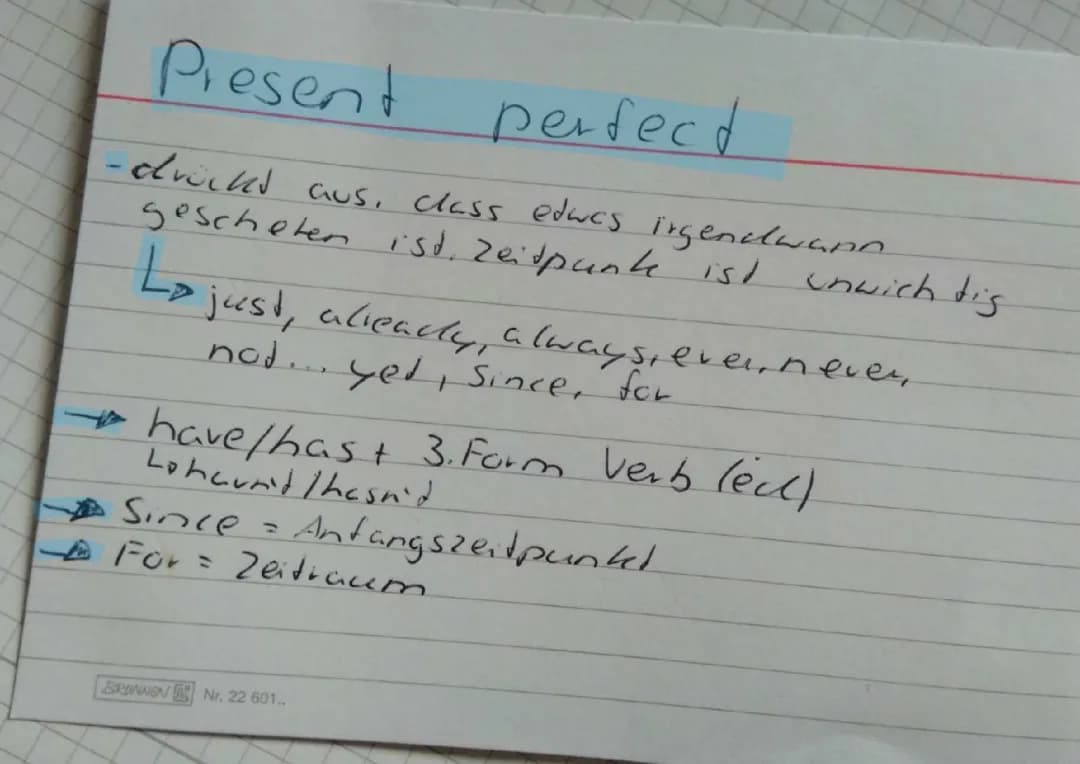 Present perfect
- drückt aus, dass etwas irgendwann
geschehen ist. Zeitpunk ist unwichtig
↳ just, already, always, ever, never,
not... yet, since, for
→ have/has + 3. Form Verb (ed)
↳ havn't/hasn't
→ Since = Anfangszeitpunkt
→ For = Zeitraum
BRUNNEN Nr. 22 601..